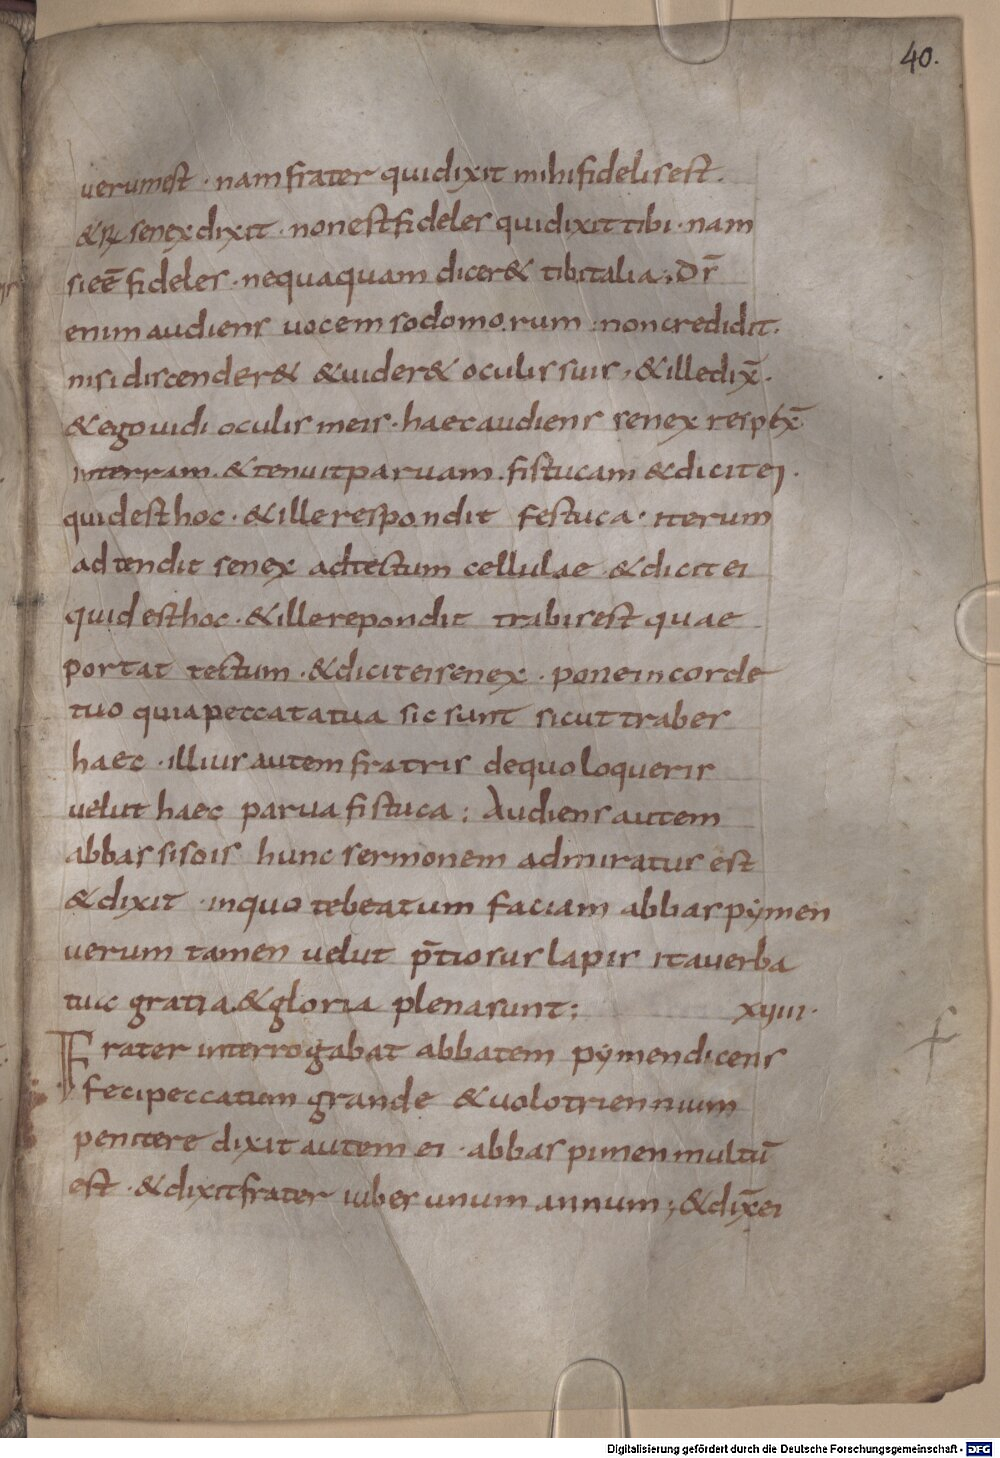 40.
verum est · nam frater qui dixit mihi fidelis est.
& senex dixit · non est fideles qui dixit tibi · nam
si eē fideles · nequaquam dicer& tibi talia; Dr̄
enim audiens vocem sodomorum · non credidit·
nisi discender& & vider& oculis suis, & ille dix̄·
& ego vidi oculis meis · haec audiens senex resp̄ex̄
in terram · & tenuit parvam · fistucam & dicit ei ·
quid est hoc · & ille respondit festuca · iterum
adtendit senex ad tectum cellulae & dicit ei
quid est hoc · & ille repondit trabis est quae
portat tectum · & dicit ei senex · pone in corde
tuo quia peccata tua sic sunt sicut trabes
haec · illius autem fratris de quo loqueris
velut haec parva fistuca : Audiens autem
abbas sisois hunc sermonem admiratus est
& dixit · in quo te beatum faciam abbas pymen
verum tamen velut p̄tiosus lapis ita verba
tua gratia & gloria plena sunt : xiiii·
Frater interrogabat abbatem pymen dicens
feci peccatum grande & volo triennium
penitere dixit autem ei · abbas pimen multū
est · & dixit frater iubes unum annum ; & dix̄ ei
Digitalisierung gefördert durch die Deutsche Forschungsgemeinschaft - DFG